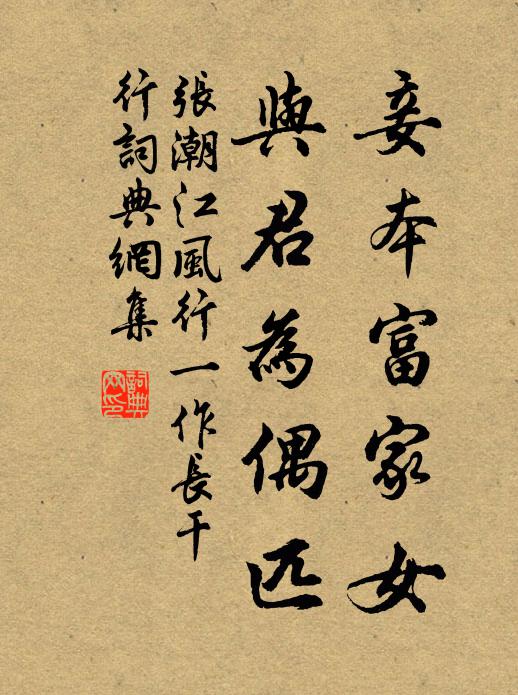 妾本富家女
與君為偶匹
張潮江風行一作長干
行詞典網集
詞典
网印